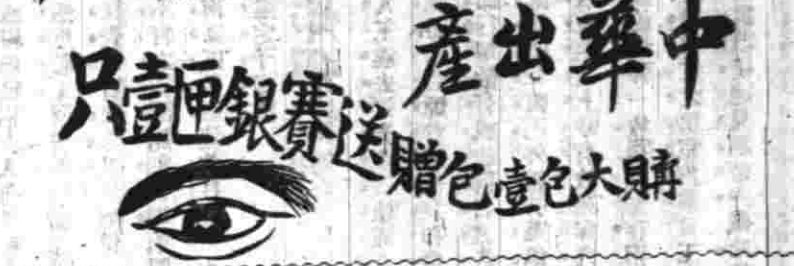 中華出產
購大包壹包贈送賽銀匣壹只